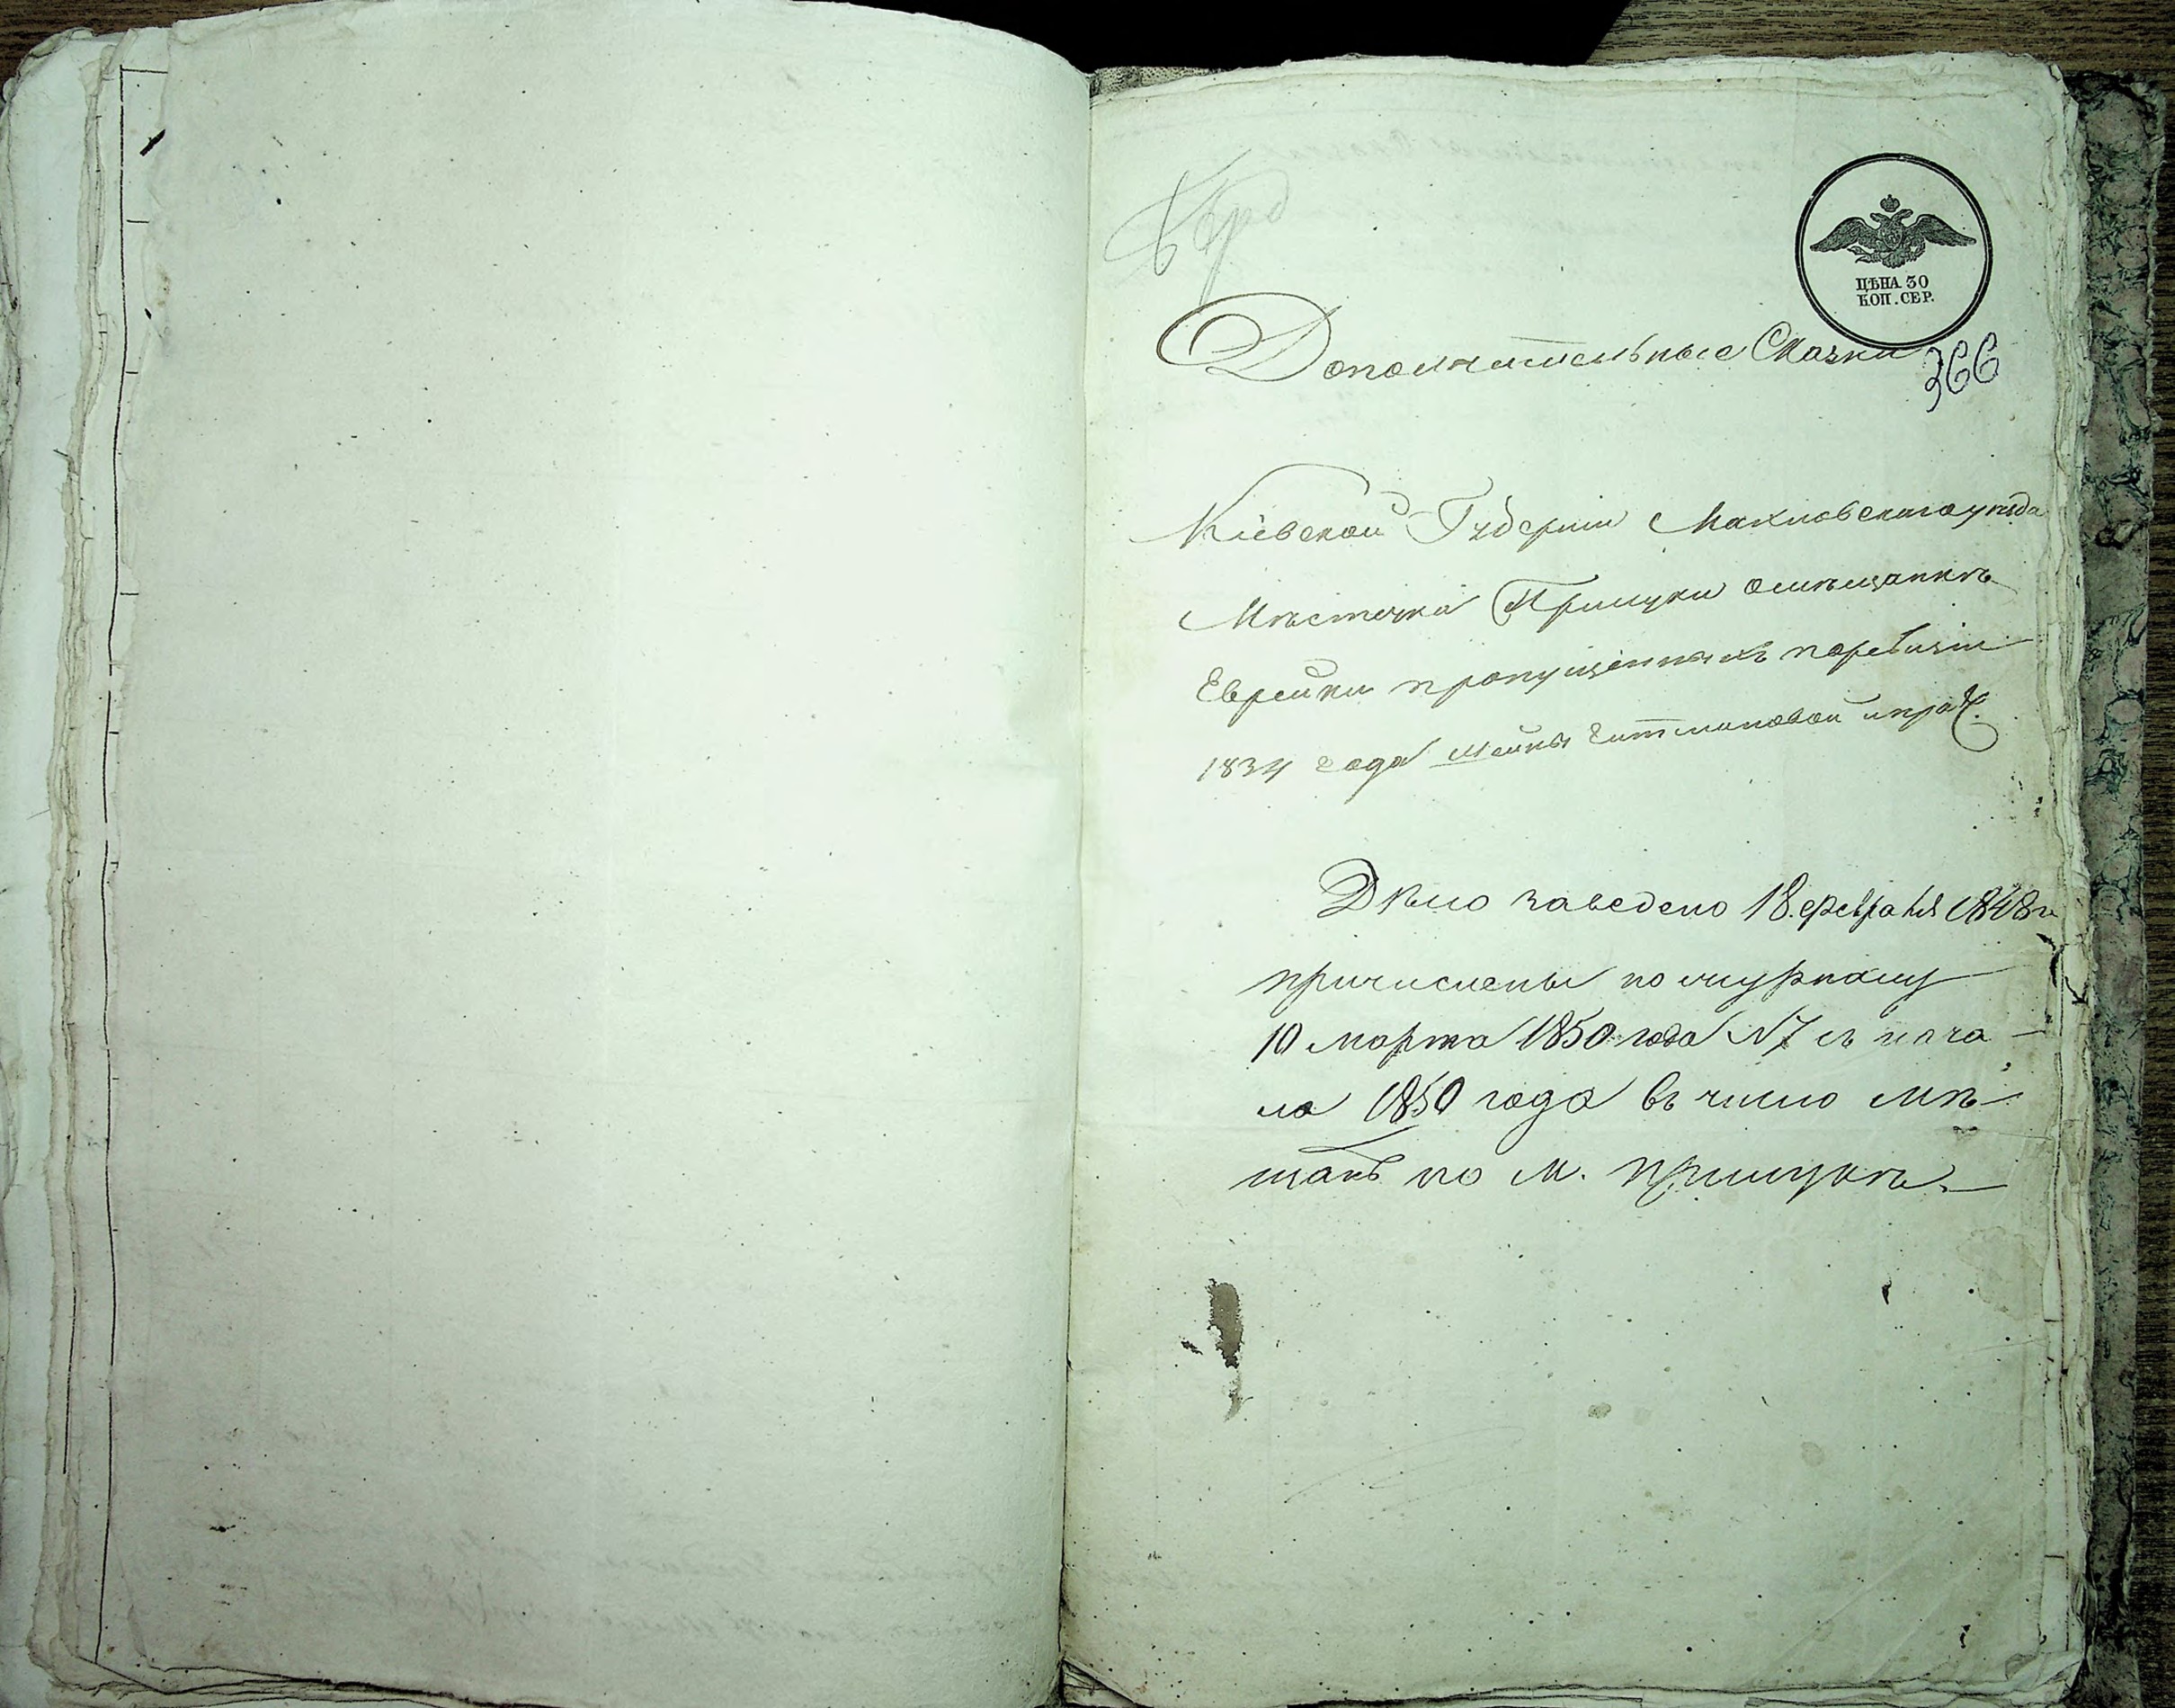 Бѣрд
ЦѢНА 30
КОП. СЕР.
Дополнительные Сказки
366
Кіевской Губерніи Махновскаго уѣзда
Мѣстечка Прилуки о мѣщанкѣ
Еврейки пропущенныхъ поревизіи
1834 года Мейны Гитмановой ипроч.
Дѣло заведено 18 февраля 1848 г
причислены по журналу
10 марта 1850 года N 7 съ нача-
ла 1850 года въ число мѣ-
щанъ по м. Прилукѣ.